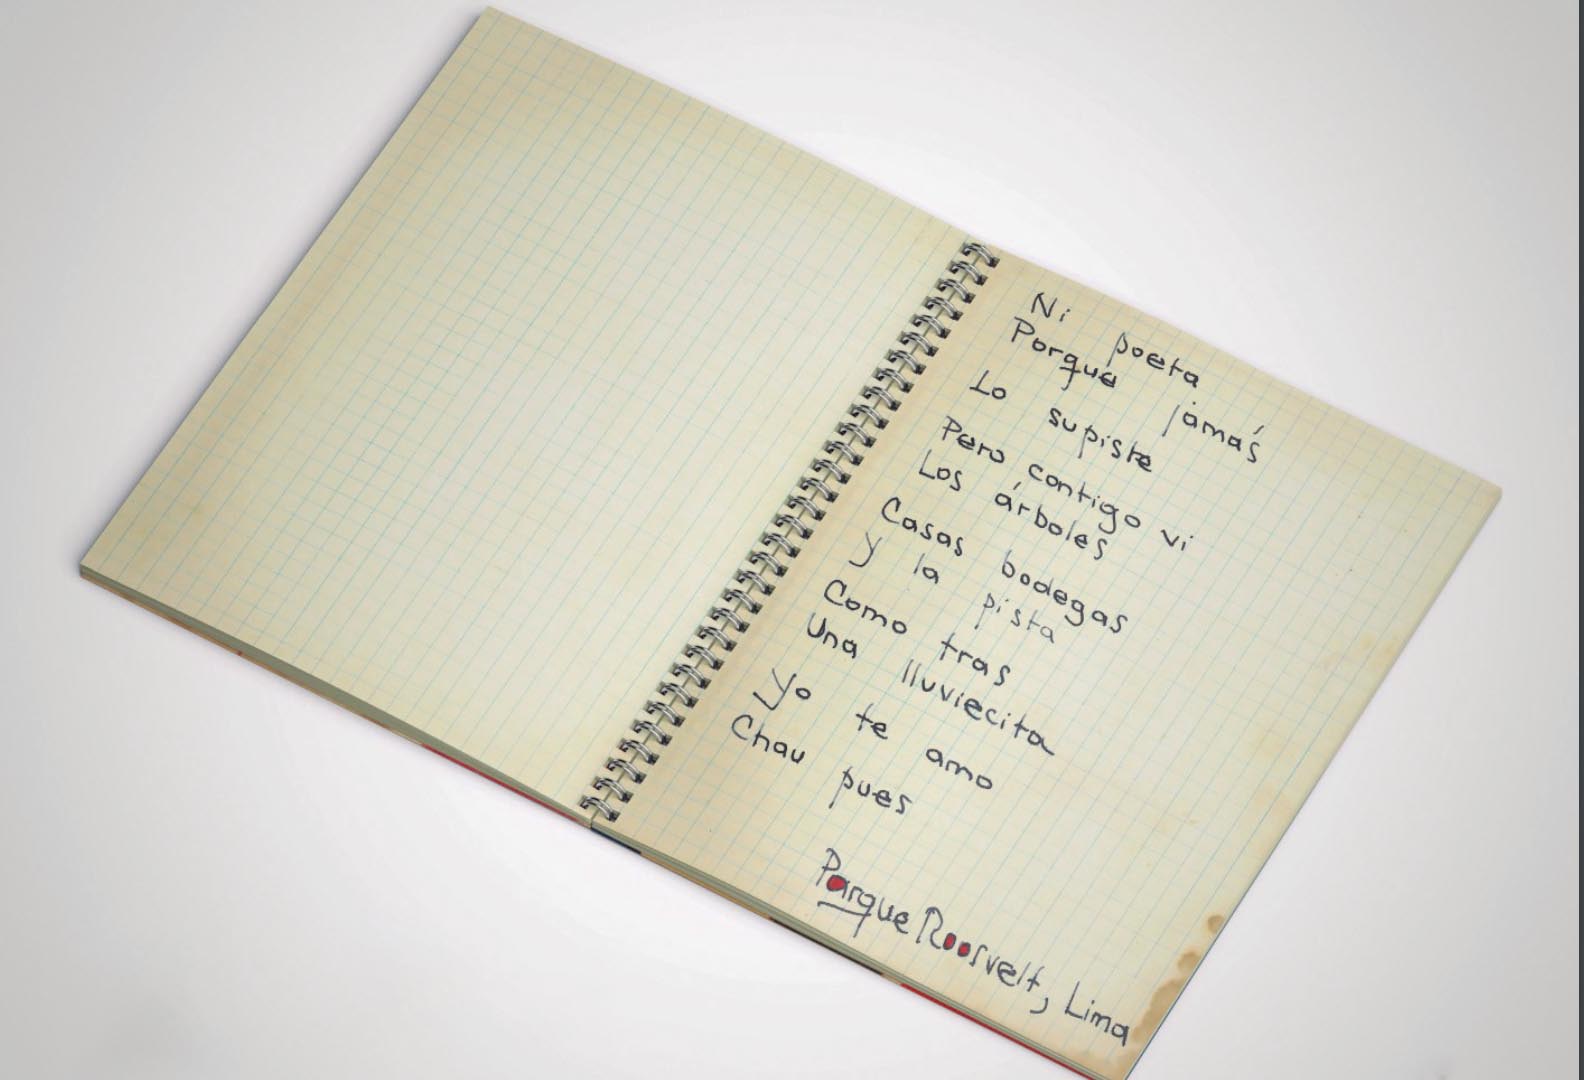 Ni poeta
Porque jamás
Lo supiste
Pero contigo vi
Los árboles
Casas bodegas
Y la pista
Como tras
Una lluviecita
Yo te amo
Chau pues
Parque Roosvelt, Lima